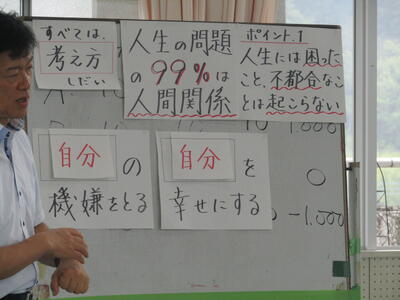 すべては、
考え方
しだい
人生の問題
の99%は
人間関係
ポイント.1
人生には困った
こと、不都合なこ
とは起こらない
自分の
機嫌をとる
自分を
幸せにする
10 1.000
0
-1.000